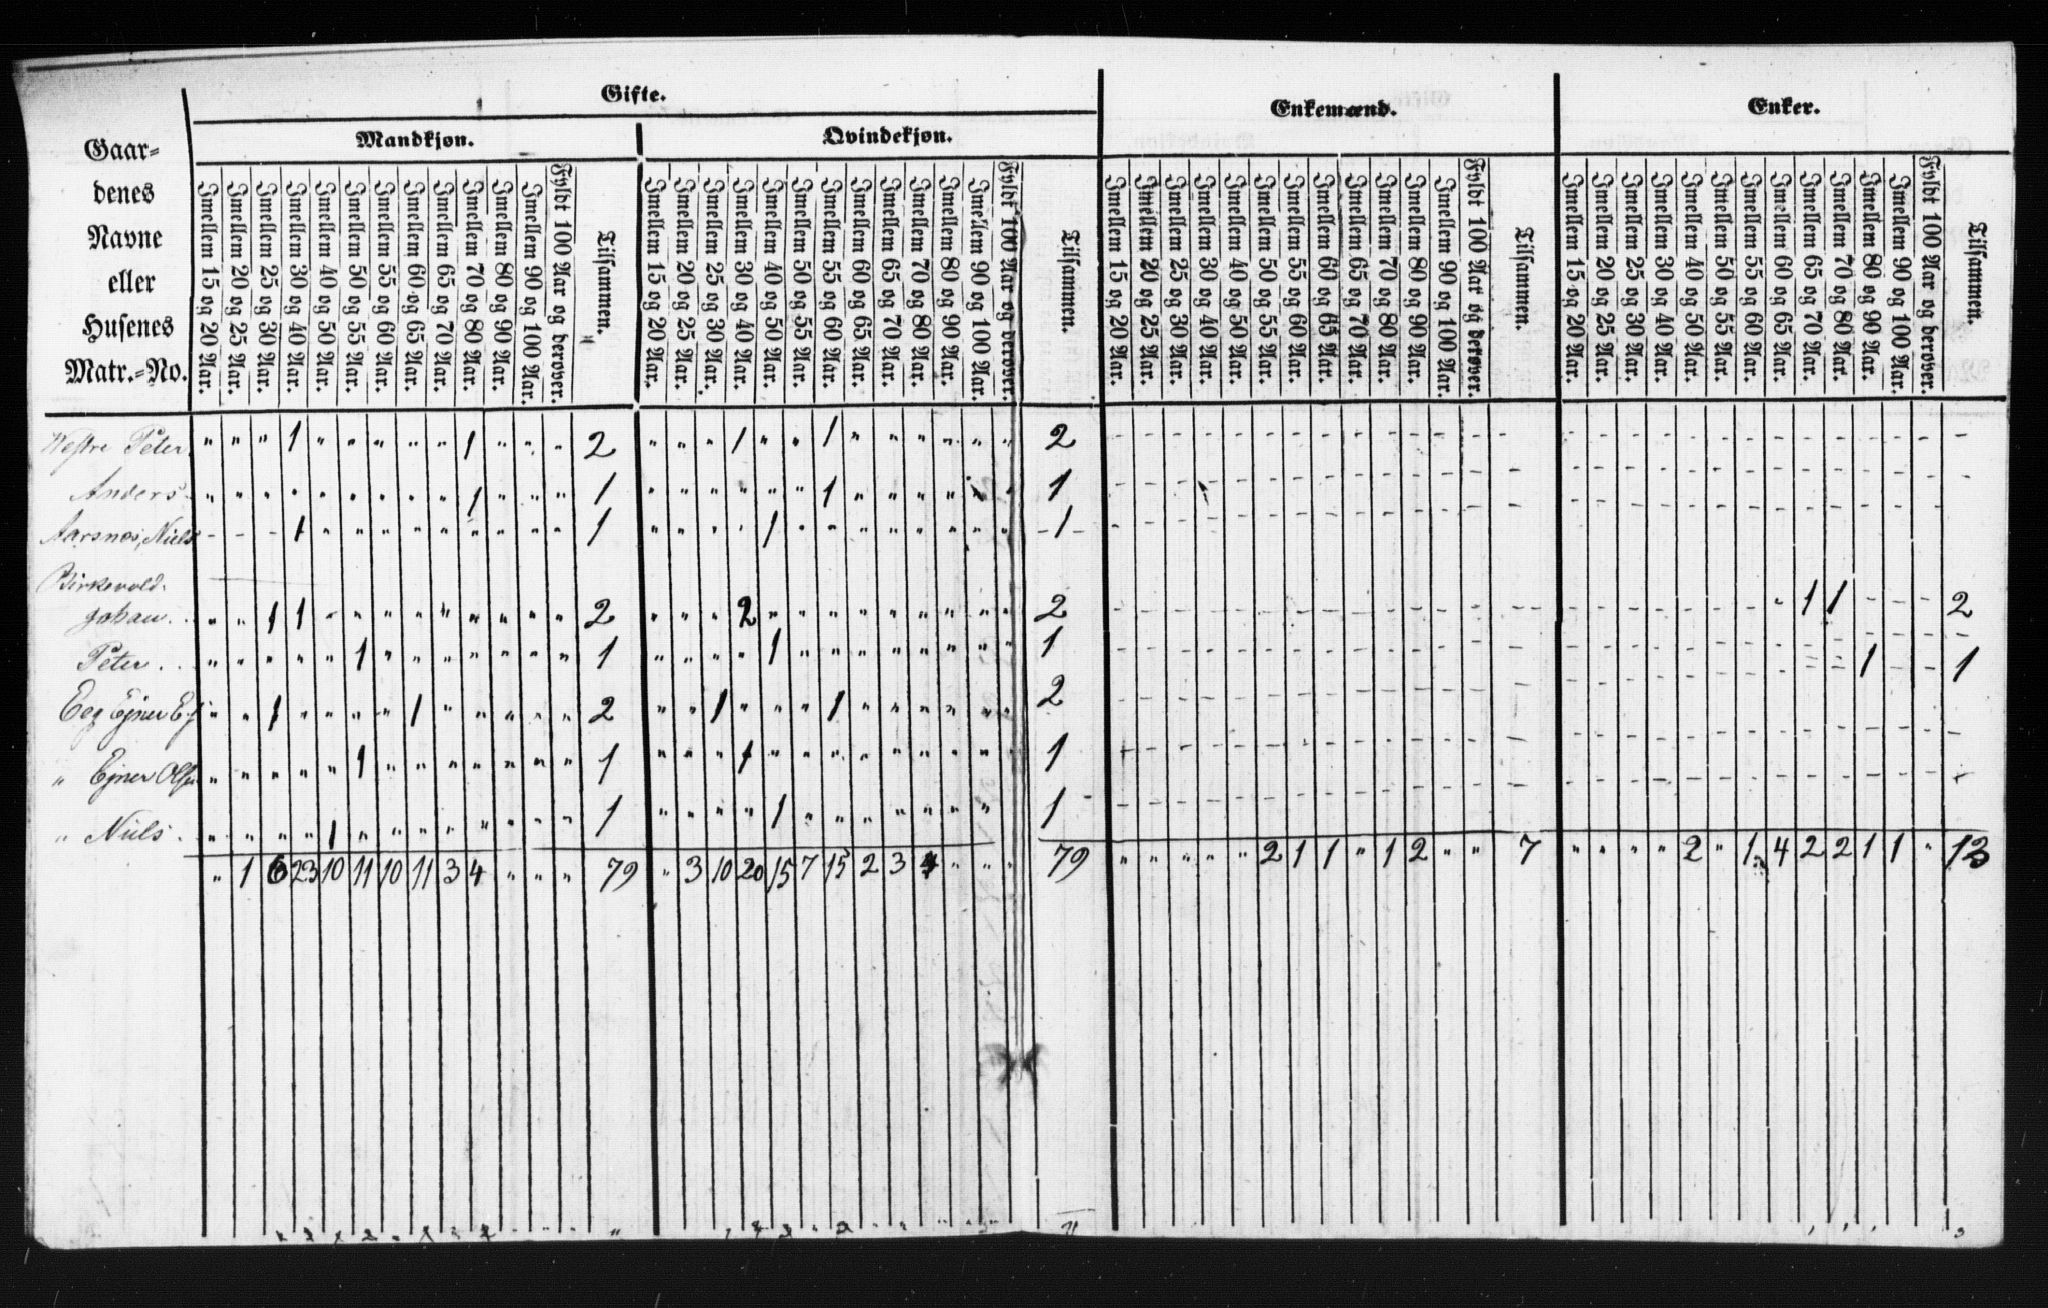 Gifte.
Enkemænd.
Enker.
Mandkjøn.
Qvindekjøn.
Gaar-
denes
Navne
eller
Husenes
Matr.-No.
Imellem 15 og 20 Aar.
Imellem 20 og 25 Aar.
Imellem 25 og 30 Aar.
Imellem 30 og 40 Aar.
Imellem 40 og 50 Aar.
Imellem 50 og 55 Aar.
Imellem 55 og 60 Aar.
Imellem 60 og 65 Aar.
Imellem 65 og 70 Aar.
Imellem 70 og 80 Aar.
Imellem 80 og 90 Aar.
Imellem 90 og 100 Aar.
Fyldt 100 Aar og derover.
Tilsammen.
Imellem 15 og 20 Aar.
Imellem 20 og 25 Aar.
Imellem 25 og 30 Aar.
Imellem 30 og 40 Aar.
Imellem 40 og 50 Aar.
Imellem 50 og 55 Aar.
Imellem 55 og 60 Aar.
Imellem 60 og 65 Aar.
Imellem 65 og 70 Aar.
Imellem 70 og 80 Aar.
Imellem 80 og 90 Aar.
Imellem 90 og 100 Aar.
Fyldt 100 Aar og derover.
Tilsammen.
Imellem 15 og 20 Aar.
Imellem 20 og 25 Aar.
Imellem 25 og 30 Aar.
Imellem 30 og 40 Aar.
Imellem 40 og 50 Aar.
Imellem 50 og 55 Aar.
Imellem 55 og 60 Aar.
Imellem 60 og 65 Aar.
Imellem 65 og 70 Aar.
Imellem 70 og 80 Aar.
Imellem 80 og 90 Aar.
Imellem 90 og 100 Aar.
Fyldt 100 Aar og derover.
Tilsammen.
Imellem 15 og 20 Aar.
Imellem 20 og 25 Aar.
Imellem 25 og 30 Aar.
Imellem 30 og 40 Aar.
Imellem 40 og 50 Aar.
Imellem 50 og 55 Aar.
Imellem 55 og 60 Aar.
Imellem 60 og 65 Aar.
Imellem 65 og 70 Aar.
Imellem 70 og 80 Aar.
Imellem 80 og 90 Aar.
Imellem 90 og 100 Aar.
Fyldt 100 Aar og derover.
Tilsammen.
Westre Peter " " " 1 " " " " " 1 " " " 2 " " " 1 " " 1 " " " " " " 2
Anders " " " " " " " " " 1 " " " 1 " " " " " " 1 " " " " " " 1
Aarsnes, Niels - - - 1 " " " " " " " " " 1 " " " " 1 " " " " " " " " 1
Birkevold
Johan " " 1 1 " " " " " " " " " 2 " " " 2 " " " " " " " " " 2 1 1 2
Peter " " " " " 1 " " " " " " " 1 " " " " 1 " " " " " " " " 1 1 1
Eeg Ejner " " 1 " " " " 1 " " " " " 2 " " 1 " " " 1 " " " " " " 2
" Ejner Olsen " " " " " 1 " " " " " " " 1 " " " 1 " " " " " " " " " 1
" Niels " " " " 1 " " " " " " " " 1 " " " " 1 " " " " " " " " 1
" 1 6 23 10 11 10 11 3 4 " " " 79 " 3 10 20 15 7 15 2 3 4 " " " 79 " " " " " 2 1 1 " 1 2 " " 7 " " " " 2 " 1 4 2 2 1 1 " 13